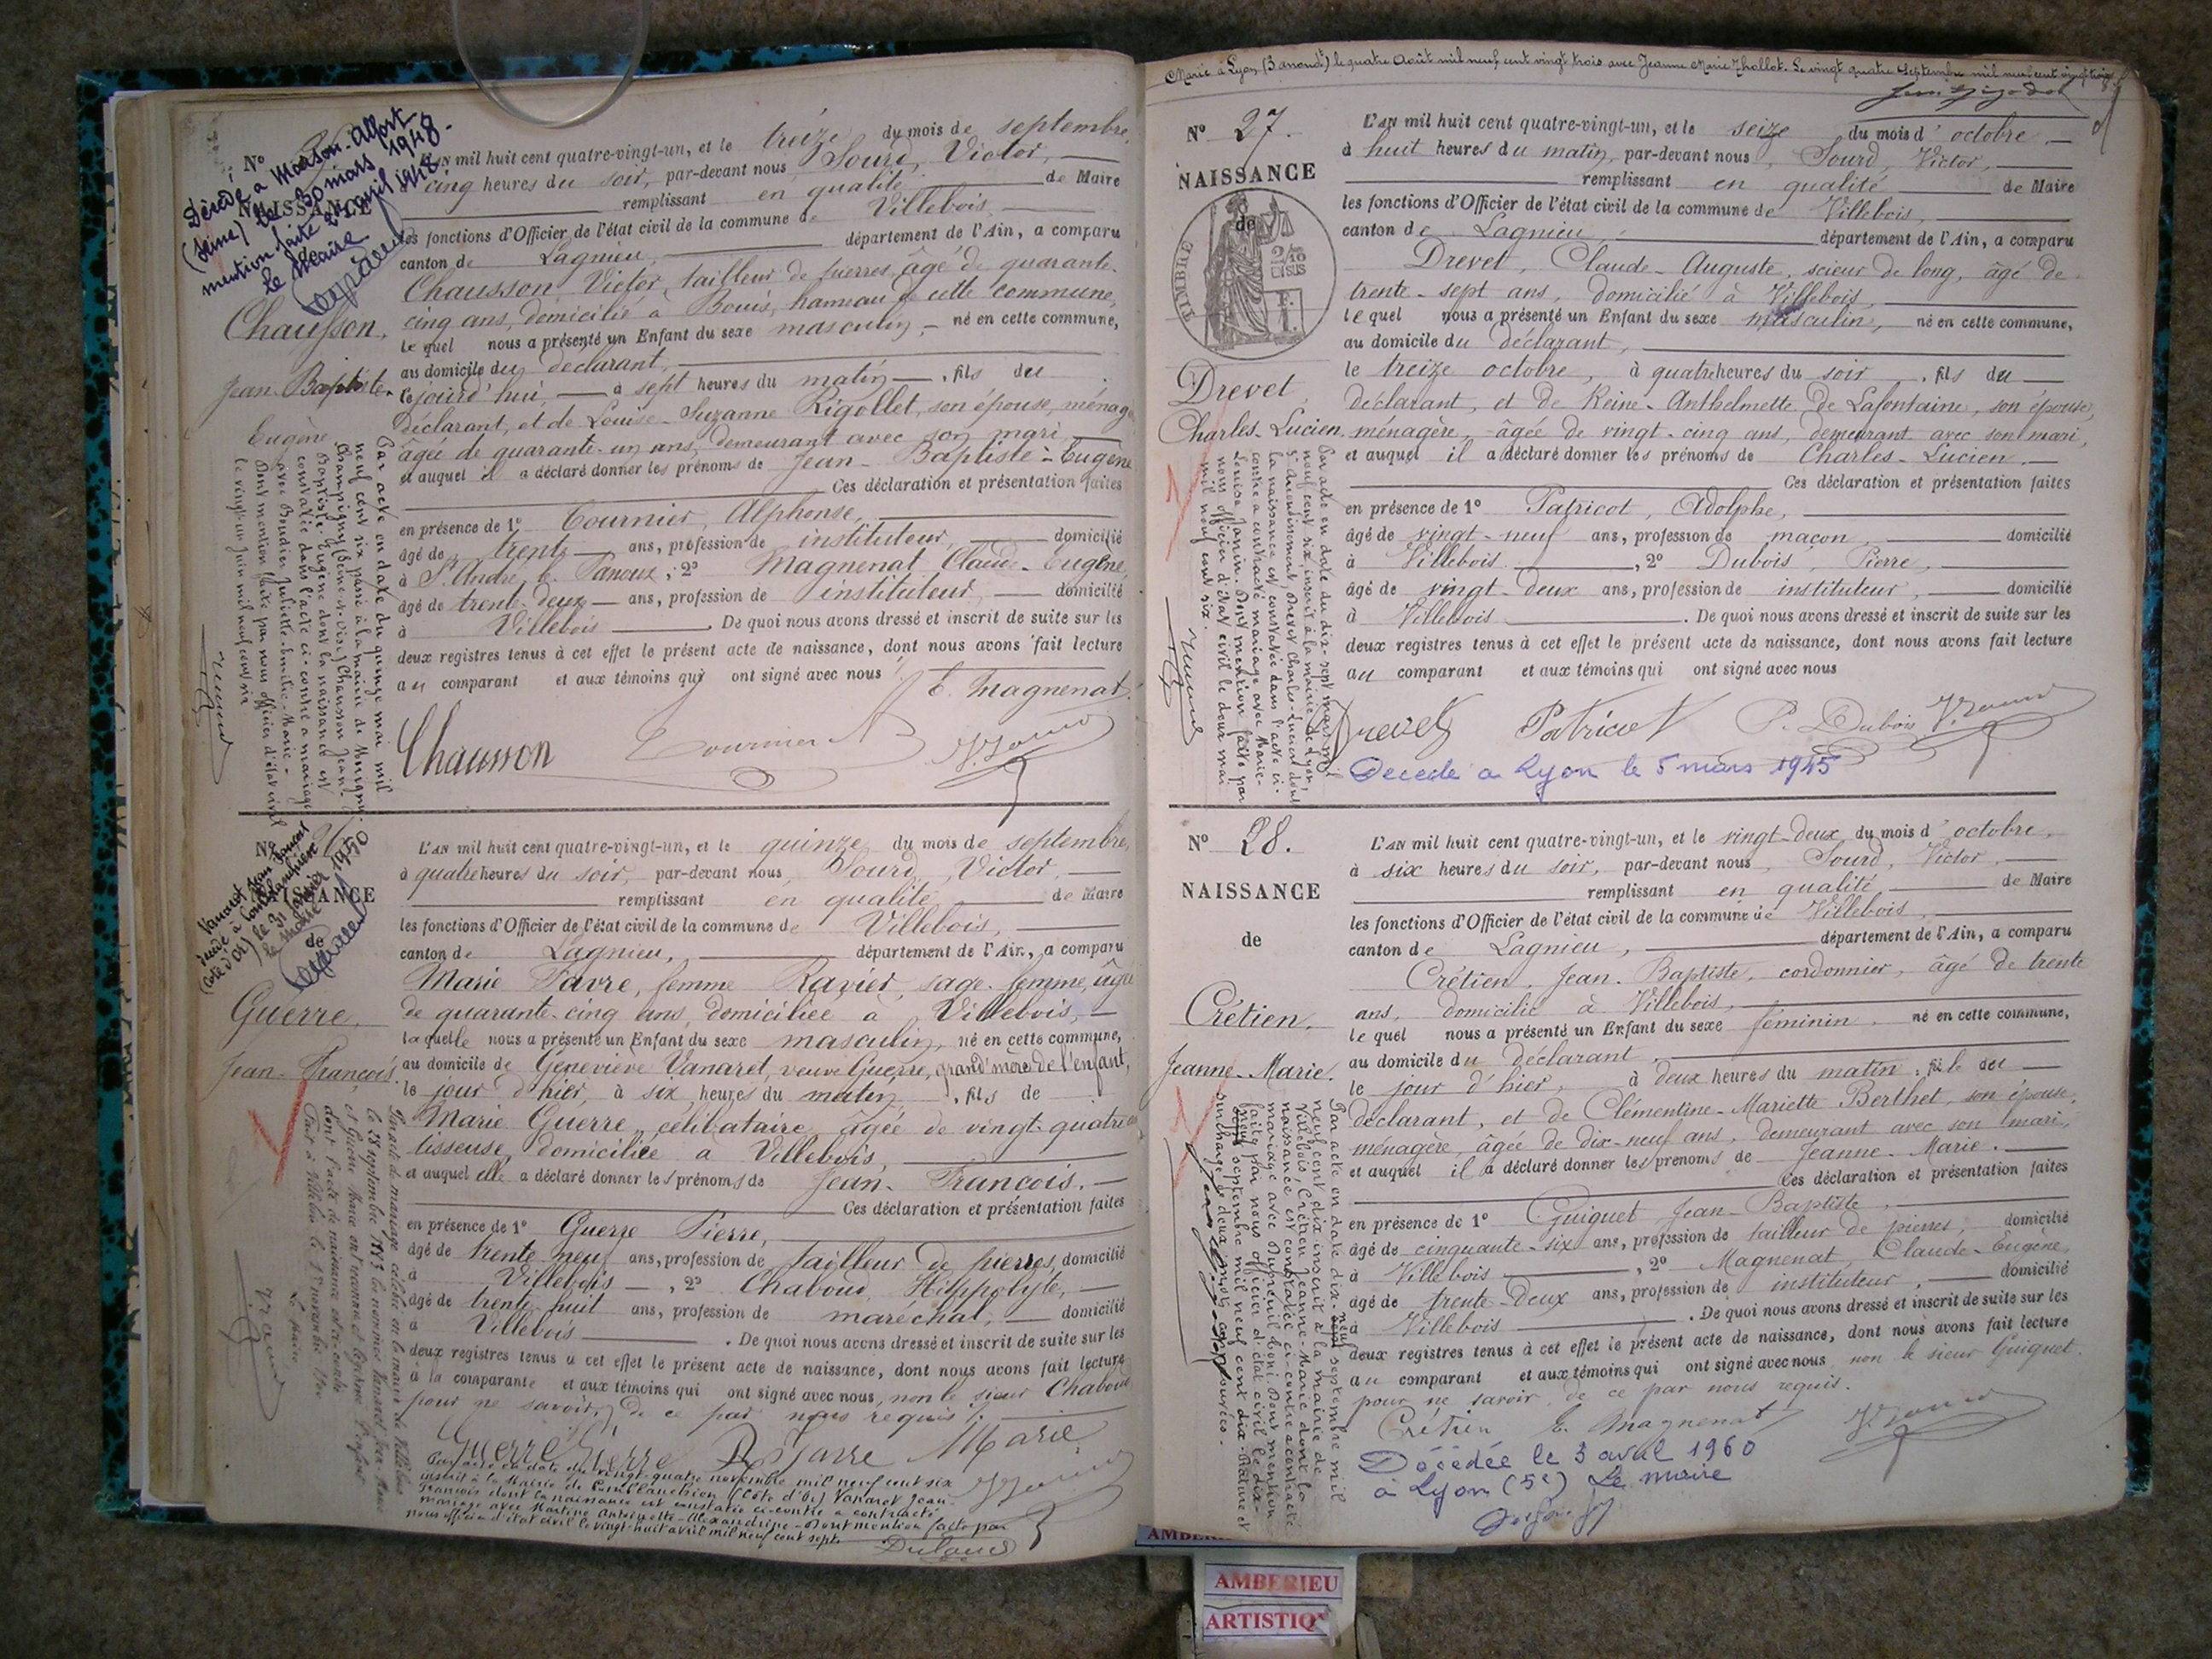 Nº
Décédé à Maison-Alfort
(Seine) le 30 mars 1948.
mention faite le avril 1948
le Maire
NAISSANCE
Chausson,
Jean-Baptiste-
Eugène
L'AN mil huit cent quatre-vingt-un, et le treize du mois de septembre,
cinq heures du soir, par-devant nous Sourd, Victor,
remplissant en qualité de Maire
les fonctions d'Officier de l'état civil de la commune de Villebois,
canton de Lagnieu, département de l'Ain, a comparu
Chausson Victor, tailleur de pierres, âgé de quarante-
cinq ans, domicilié à Bouis, hameau de cette commune,
lequel nous a présenté un Enfant du sexe masculin, né en cette commune,
au domicile du déclarant,
cejourd'hui, à sept heures du matin, fils du
déclarant, et de Louise-Suzanne Rigollet, son épouse, ménagère
âgée de quarante-un ans, demeurant avec son mari,
et auquel il a déclaré donner les prénoms de Jean-Baptiste-Eugène
Ces déclaration et présentation faites
en présence de 1º Tournier, Alphonse,
âgé de trente ans, profession de instituteur, domicilié
à St André, 2º Magnenat, Claude-Eugène,
âgé de trente-deux ans, profession de instituteur, domicilié
à Villebois. De quoi nous avons dressé et inscrit de suite sur les
deux registres tenus à cet effet le présent acte de naissance, dont nous avons fait lecture
au comparant et aux témoins qui ont signé avec nous
E. Magnenat
Chausson Tournier A V. Sourd
Par acte en date du quinze mai mil
neuf cent six passé à la mairie de
Champigny (Seine) Chausson Jean-
Baptiste-Eugène dont la naissance est
constatée dans l'acte ci-contre a mariage
avec Boudier Juliette-Emilie-Marie-
Dont mention faite par nous officier d'état civil
le vingt-un juin mil neuf cent six
Nº 26
NAISSANCE
de
Vanaret Jean François
décédé à Comblanchien
(Côte d'Or) le 31 janvier 1950
le maire
Guerre,
Jean-François.
L'AN mil huit cent quatre-vingt-un, et le quinze du mois de septembre,
à quatre heures du soir, par-devant nous, Sourd, Victor,
remplissant en qualité de Maire
les fonctions d'Officier de l'état civil de la commune de Villebois,
canton de Lagnieu, département de l'Ain, a comparu
Marie Favre, femme Ravier, sage-femme, âgée
de quarante-cinq ans, domiciliée à Villebois,
laquelle nous a présenté un Enfant du sexe masculin, né en cette commune,
au domicile de Geneviève Vanaret, veuve Guerre, grand'mère de l'enfant,
le jour d'hier, à six heures du matin, fils de
Marie Guerre, célibataire, âgée de vingt-quatre ans
tisseuse, domiciliée à Villebois,
et auquel elle a déclaré donner les prénoms de Jean-François.
Ces déclaration et présentation faites
en présence de 1º Guerre Pierre,
âgé de trente neuf ans, profession de tailleur de pierres, domicilié
à Villebois, 2º Chaboud, Hippolyte,
âgé de trente huit ans, profession de maréchal, domicilié
à Villebois. De quoi nous avons dressé et inscrit de suite sur les
deux registres tenus à cet effet le présent acte de naissance, dont nous avons fait lecture
à la comparante et aux témoins qui ont signé avec nous, non le sieur Chaboud
pour ne savoir, de ce par nous requis.
Guerre Pierre Favre Marie
Par acte en date du vingt-quatre novembre mil neuf cent six
inscrit à la Mairie de Comblanchien (Côte d'Or) Vanaret Jean-
François dont la naissance est constatée ci-contre a contracté
mariage avec Martine Antoinette-Alexandrine-Dont mention faite par
nous officier d'état civil le vingt-huit avril mil neuf cent sept.
Marié à Lyon (3 arrondt) le quatre Août mil neuf cent vingt trois avec Jeanne Marie Thollot. Le vingt quatre Septembre mil neuf cent vingt trois
Nº 27.
NAISSANCE
de
TIMBRE
Drevet,
Charles-Lucien.
L'AN mil huit cent quatre-vingt-un, et le seize du mois d'octobre,
à huit heures du matin, par-devant nous, Sourd, Victor,
remplissant en qualité de Maire
les fonctions d'Officier de l'état civil de la commune de Villebois,
canton de Lagnieu, département de l'Ain, a comparu
Drevet, Claude-Auguste, scieur de long, âgé de
trente-sept ans, domicilié à Villebois,
lequel nous a présenté un Enfant du sexe masculin, né en cette commune,
au domicile du déclarant,
le treize octobre, à quatre heures du soir, fils du
déclarant, et de Reine-Anthelmette de Lafontaine, son épouse,
ménagère, âgée de vingt-cinq ans, demeurant avec son mari,
et auquel il a déclaré donner les prénoms de Charles-Lucien.
Ces déclaration et présentation faites
en présence de 1º Patricot, Adolphe,
âgé de vingt-neuf ans, profession de maçon, domicilié
à Villebois, 2º Dubois, Pierre,
âgé de vingt-deux ans, profession de instituteur, domicilié
à Villebois. De quoi nous avons dressé et inscrit de suite sur les
deux registres tenus à cet effet le présent acte de naissance, dont nous avons fait lecture
au comparant et aux témoins qui ont signé avec nous
Drevet Patricot P. Dubois V. Sourd
Décédé à Lyon le 5 mars 1945
Par acte en date du dix-sept mars mil
neuf cent six, inscrit à la mairie de Lyon,
arrondissement, Drevet Charles-Lucien dont
la naissance est constatée dans l'acte ci-
contre a contracté mariage avec Marie-
Louise Janin. Dont mention faite par
nous officier d'état civil le douze mai
mil neuf cent six.
Nº 28.
NAISSANCE
de
Crétien,
Jeanne-Marie.
L'AN mil huit cent quatre-vingt-un, et le vingt-deux du mois d'octobre,
à six heures du soir, par-devant nous, Sourd, Victor,
remplissant en qualité de Maire
les fonctions d'Officier de l'état civil de la commune de Villebois,
canton de Lagnieu, département de l'Ain, a comparu
Crétien, Jean-Baptiste, cordonnier, âgé de trente
ans, domicilié à Villebois,
lequel nous a présenté un Enfant du sexe féminin, né en cette commune,
au domicile du déclarant,
le jour d'hier, à deux heures du matin, fille du
déclarant, et de Clémentine-Mariette Berthet, son épouse,
ménagère, âgée de dix-neuf ans, demeurant avec son mari,
et auquel il a déclaré donner les prénoms de Jeanne-Marie.
Ces déclaration et présentation faites
en présence de 1º Guiguet Jean-Baptiste,
âgé de cinquante-six ans, profession de tailleur de pierres, domicilié
à Villebois, 2º Magnenat, Claude-Eugène,
âgé de trente-deux ans, profession de instituteur, domicilié
à Villebois. De quoi nous avons dressé et inscrit de suite sur les
deux registres tenus à cet effet le présent acte de naissance, dont nous avons fait lecture
au comparant et aux témoins qui ont signé avec nous, non le sieur Guiguet,
pour ne savoir, de ce par nous requis.
Crétien E. Magnenat V. Sourd
Décédée le 3 avril 1960
à Lyon (5e) Le maire
Par acte en date du dix-neuf septembre mil
neuf cent dix inscrit à la mairie de
Villebois, Crétien Jeanne-Marie dont la
naissance est constatée ci-contre a contracté
mariage avec
faite par nous officier d'état civil le dix-
neuf septembre mil neuf cent dix-
surcharge deux mots
AMBERIEU
ARTISTIQ